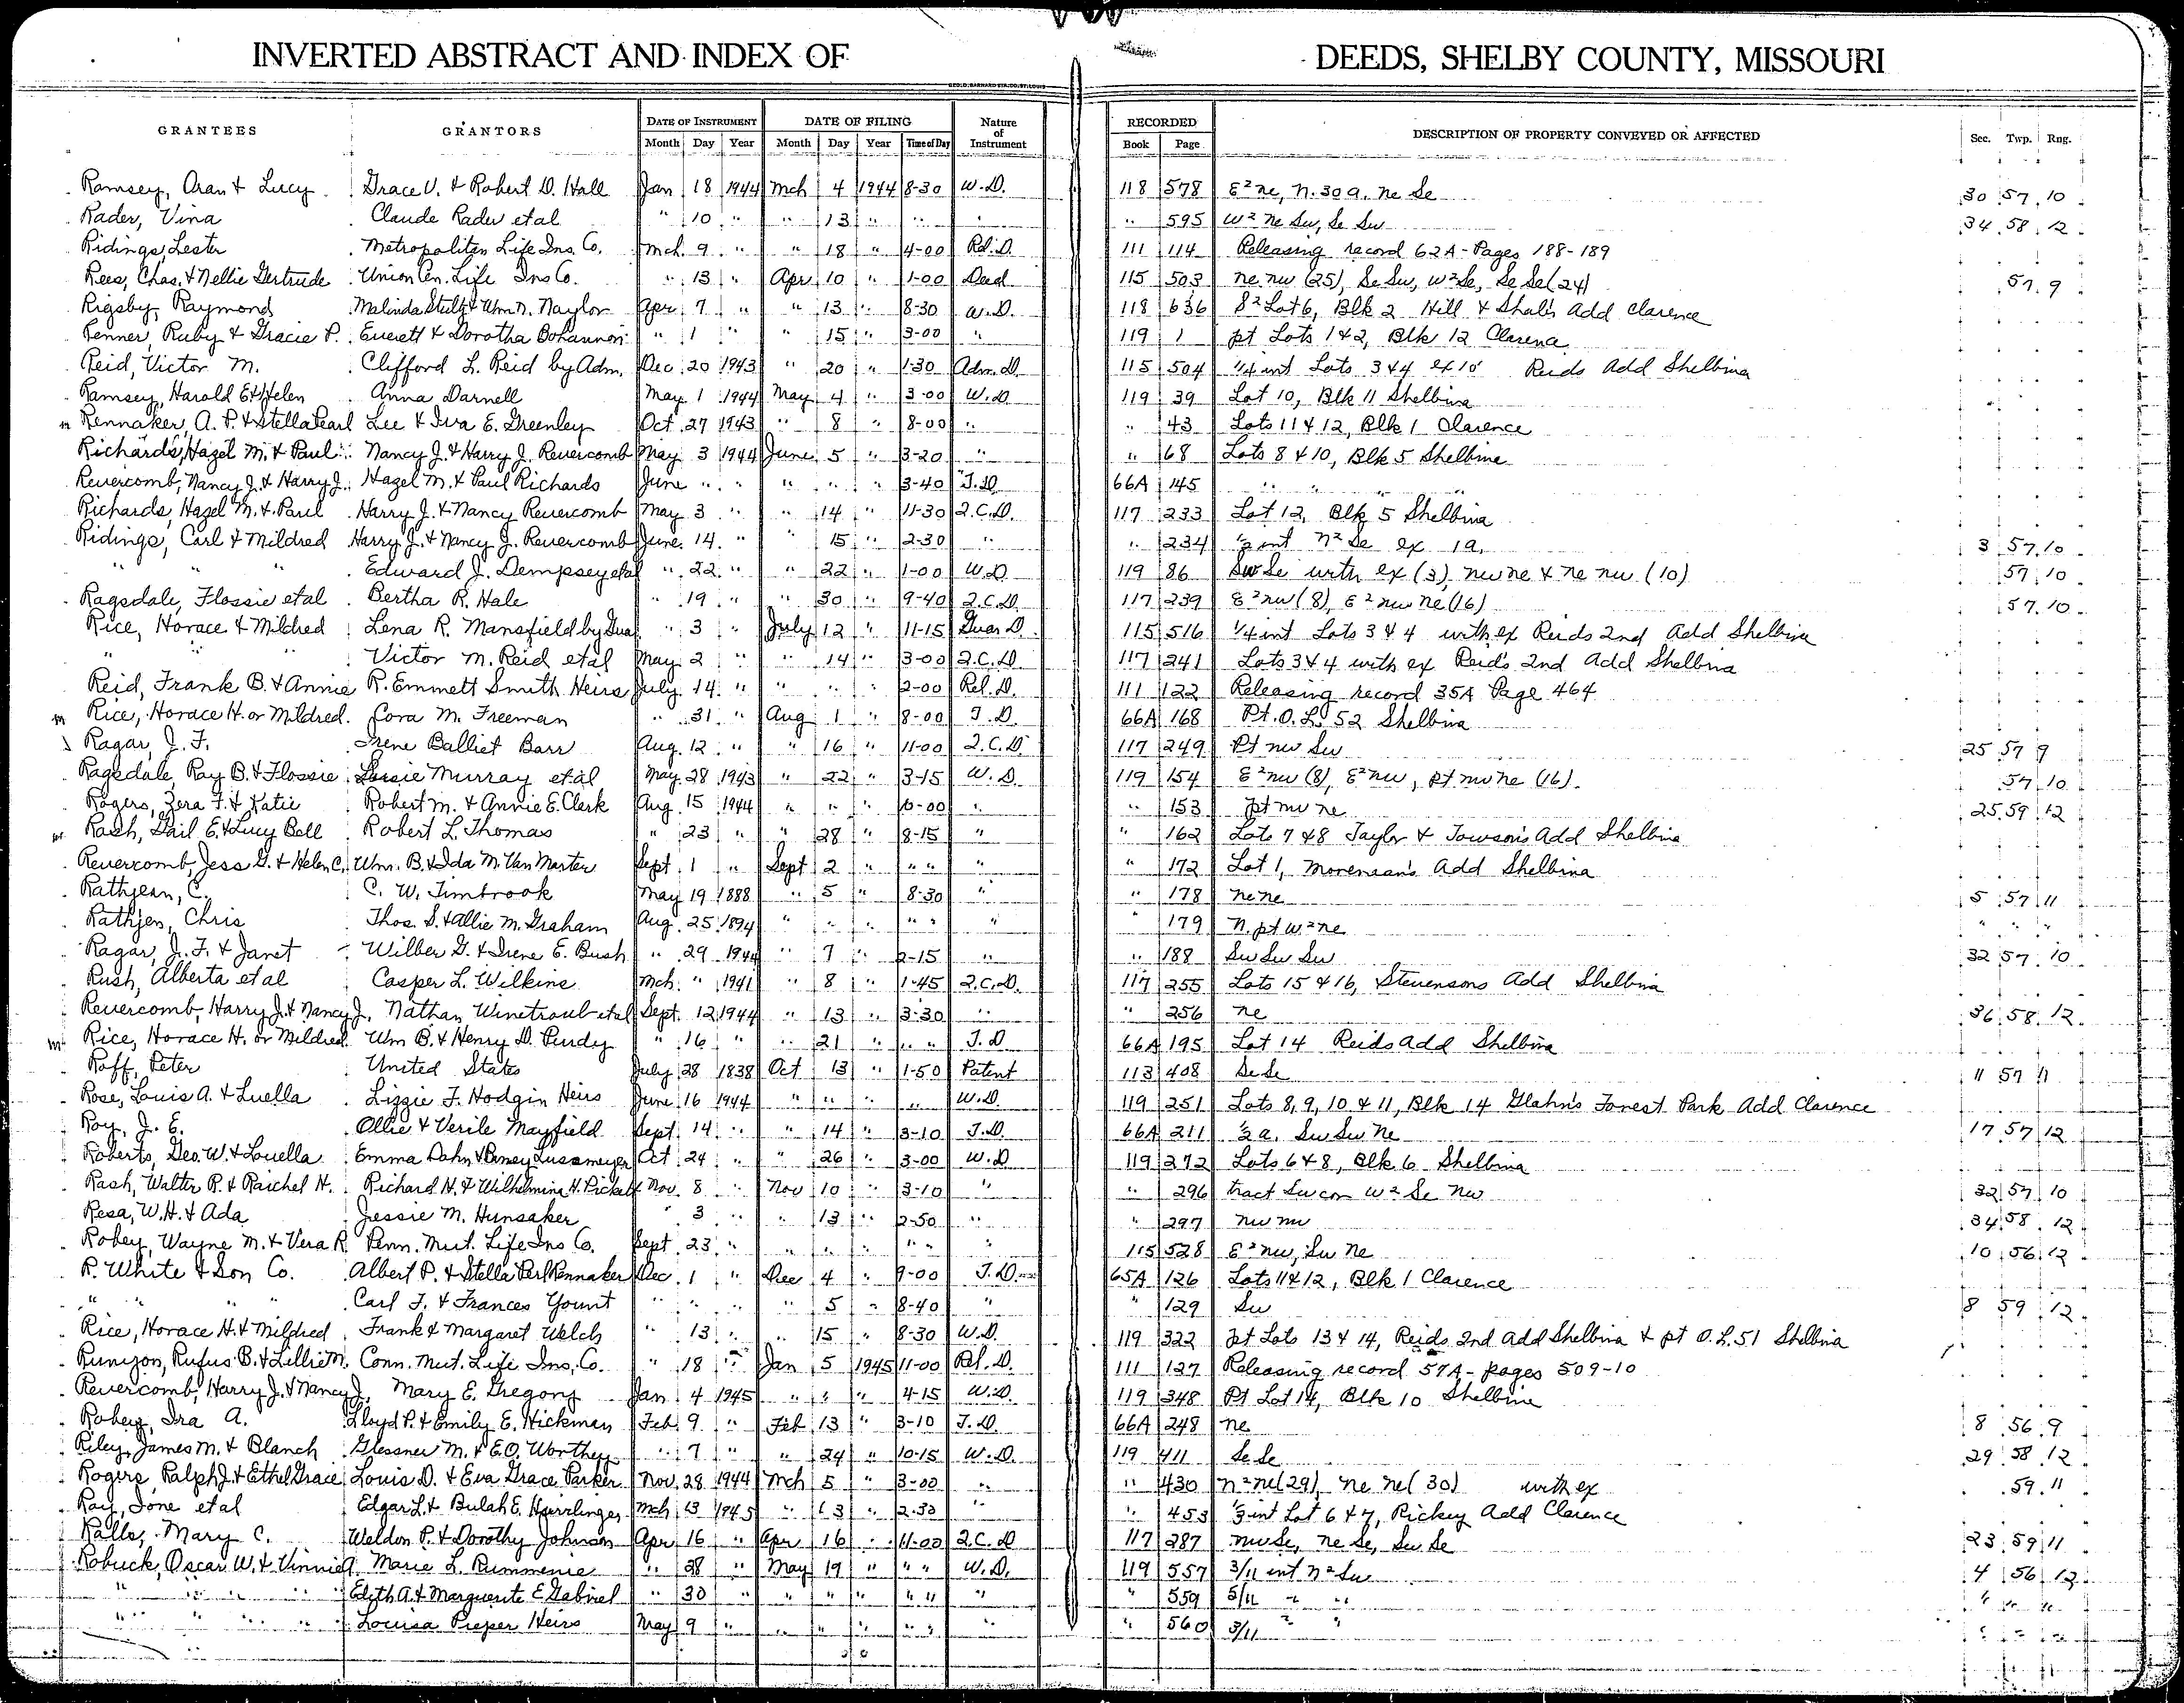 INVERTED ABSTRACT AND INDEX OF DEEDS, SHELBY COUNTY, MISSOURI
GRANTEES GRANTORS DATE OF INSTRUMENT DATE OF FILING Nature of Instrument RECORDED DESCRIPTION OF PROPERTY CONVEYED OR AFFECTED Sec. Twp. Rng.
Month Day Year Month Day Year Time of Day Book Page
Ramsey, Oran & Lucy Grace V. & Robert D. Hall Jan 18 1944 Mch 4 1944 8-30 W.D. 118 578 E² ne, N. 30 a. ne Se 30 57 10
Rader, Vina Claude Rader et al " 10 " " 13 " " " " 595 W² ne Sw, Se Sw 34 58 12
Ridings, Lester Metropolitan Life Ins. Co. Mch 9 " " 18 " 4-00 Rel. D. 111 114 Releasing record 62A - Pages 188-189
Rees, Chas. & Nellie Gertrude Union Cen. Life Ins Co. " 13 " Apr 10 " 1-00 Deed 115 503 ne nw (25), Se Sw, W² Se, Se Se (24) 57 9
Rigsby, Raymond Malinda Stultz & Wm. N. Naylor Apr 7 " " 13 " 8-30 W.D. 118 636 S² Lot 6, Blk 2 Hill & Add Clarence
Penner, Ruby & Gracie P. Everett & Dorotha Bohannon " 1 " " 15 " 3-00 " 119 1 pt Lots 1 & 2, Blk 12 Clarence
Reid, Victor M. Clifford L. Reid by Adm. Dec 20 1943 " 20 " 1-30 Adm. D. 115 504 1/4 int Lots 3 & 4 ex 10' Reids Add Shelbina
Ramsey, Harold E & Helen Anna Darnell May 1 1944 May 4 " 3-00 W.D. 119 39 Lot 10, Blk 11 Shelbina
Rennaker, A. P. & Stella Pearl Lee & Iva E. Greenley Oct. 27 1943 " 8 " 8-00 " " 43 Lots 11 & 12, Blk 1 Clarence
Richards, Hazel M. & Paul Nancy J. & Harry J. Revercomb May 3 1944 June 5 " 3-20 " " 68 Lots 8 & 10, Blk 5 Shelbina
Revercomb, Nancy J. & Harry J. Hazel M. & Paul Richards June " " " " " 3-40 T.D. 66A 145 " " " "
Richards, Hazel M. & Paul Harry J. & Nancy Revercomb May 3 " " 14 " 11-30 Q.C.D. 117 233 Lot 12, Blk 5 Shelbina
Ridings, Carl & Mildred Harry J. & Nancy J. Revercomb June 14 " " 15 " 2-30 " " 234 1/2 int N² Se ex 1a. 3 57 10
" " " Edward J. Dempsey et al " 22 " " 22 " 1-00 W.D. 119 86 Sw Se with ex (3), nw ne & ne nw (10) 57 10
Ragsdale, Flossie et al Bertha R. Hale " 19 " " 30 " 9-40 Q.C.D. 117 239 E² nw (8), E² nw ne (16) 57 10
Rice, Horace & Mildred Lena R. Mansfield by Guar " 3 " July 12 " 11-15 Guar D. 115 516 1/4 int Lots 3 & 4 with ex Reids 2nd Add Shelbina
" " " Victor M. Reid et al May 2 " " 14 " 3-00 Q.C.D. 117 241 Lots 3 & 4 with ex Reid's 2nd Add Shelbina
Reid, Frank B. & Annie R. Emmett Smith Heirs July 14 " " " " 2-00 Rel. D. 111 122 Releasing record 35A Page 464
m Rice, Horace H. or Mildred Cora M. Freeman " 31 " Aug 1 " 8-00 T.D. 66A 168 Pt. O.L. 52 Shelbina
Ragar, J. F. Irene Balliet Barr Aug. 12 " " 16 " 11-00 Q.C.D. 117 249 Pt nw Sw 25 57 9
Ragsdale, Ray B. & Flossie Murray et al May 28 1943 " 22 " 3-15 W.D. 119 154 E² nw (8), E² nw, pt nw ne (16). 57 10
Rogers, Zera F. & Katie Robert M. & Annie E. Clerk Aug 15 1944 " " " 10-00 " " 153 pt nw ne 25 59 12
Rash, Gail E. & Lucy Bell Robert L. Thomas " 23 " " 28 " 8-15 " " 162 Lots 7 & 8 Taylor & Towson's Add Shelbina
Revercomb, Jess G. & Helen C. Wm. B. & Ida M. Van Marter Sept 1 " Sept 2 " " " " " 172 Lot 1, Add Shelbina
Rathjean, C. C. W. Timbrook May 19 1888 " 5 " 8-30 " " 178 ne ne 5 57 11
Rathjen, Chris Thos. S. & Allie M. Graham Aug. 25 1894 " " " " " " " 179 N. pt W² ne " " "
Ragar, J. F. & Janet Wilber G. & Irene E. Bush " 29 1944 " 7 " 2-15 " " 188 Sw Sw Sw 32 57 10
Rush, Alberta et al Casper L. Wilkins Mch " 1941 " 8 " 1-45 Q.C.D. 117 255 Lots 15 & 16, Stevensons Add Shelbina
Revercomb, Harry J. & Nancy J. Nathan Winetroub et al Sept. 12 1944 " 13 " 3-30 " " 256 ne 36 58 12
m Rice, Horace H. or Mildred Wm B. & Henry D. Purdy " 16 " " 21 " " " T.D 66A 195 Lot 14 Reids Add Shelbina
Roff, Peter United States July 28 1838 Oct 13 " 1-50 Patent 113 408 Se Se 11 57 11
Rose, Louis A. & Luella Lizzie F. Hodgin Heirs June 16 1944 " " " " W.D. 119 251 Lots 8, 9, 10 & 11, Blk 14 Glahn's Forest Park Add Clarence
Roy, J. E. Ollie & Verile Mayfield Sept. 14 " " 14 " 3-10 T.D. 66A 211 1/2 a. Sw Sw Ne 17 57 12
Roberts, Geo. W. & Louella Emma Dahn & Oct 24 " " 26 " 3-00 W.D 119 272 Lots 6 & 8, Blk 6 Shelbina
Rash, Walter R. & Raichel H. Richard H. & Wilhelmina H. Pickett Nov. 8 " Nov 10 " 3-10 " " 296 tract Sw cor W² Se Nw 32 57 10
Resa, W. H. & Ada Jessie M. Hunsaker " 3 " " 13 " 2-50 " " 297 nw nw 34 58 12
Robey, Wayne M. & Vera R. Penn. Mut. Life Ins Co. Sept. 23 " " " " " " " 115 528 E² nw, Sw ne 10 56 12
R. White & Son Co. Albert P. & Stella Perl Rennaker Dec. 1 " Dec 4 " 9-00 T.D. 65A 126 Lots 11 & 12, Blk 1 Clarence
" " " " Carl F. & Frances Yount " " " " 5 " 8-40 " " 129 Sw 8 59 12
Rice, Horace H. & Mildred Frank & Margaret Welch " 13 " " 15 " 8-30 W.D. 119 322 pt Lots 13 & 14, Reids 2nd Add Shelbina & pt O.L. 51 Shelbina
Runyon, Rufus B. & Lillie M. Conn. Mut. Life Ins, Co. " 18 " Jan 5 1945 11-00 Rel. D. 111 127 Releasing record 57A - pages 509-10
Revercomb, Harry J. & Nancy J. Mary E. Gregory Jan 4 1945 " " " 4-15 W.D. 119 348 Pt Lot 14, Blk 10 Shelbina
Robey, Ira A. Lloyd P. & Emily E. Hickman Feb. 9 " Feb 13 " 3-10 T.D. 66A 248 ne 8 56 9
Riley, James M. & Blanch Glessner M. & E.O. Worthey " 7 " " 24 " 10-15 W.D. 119 411 Se Se 29 58 12
Rogers, Ralph J. & Ethel Grace Louis D. & Eva Grace Parker Nov. 28 1944 Mch 5 " 3-00 " " 430 N² ne (29), ne ne (30) with ex 59 11
Ray, Ione et al Edgar L. & Bulah E. Mch 13 1945 " 13 " 2-30 " " 453 1/3 int Lot 6 & 7, Rickey Add Clarence
Ralls, Mary C. Weldon P. & Dorothy Johnson Apr 16 " Apr 16 " 11-00 Q.C.D 117 287 nw Se, ne Se, Sw Se 23 59 11
Robuck, Oscar W. & Vinnie A. Marie L. Rummenie " 28 " May 19 " " " W.D. 119 557 3/11 int N² Sw 4 56 12
" " " " Edith A. & Marguerite E Gabriel " 30 " " " " " " " " 559 5/11 " " " " "
" " " " Louisa Pieper Heirs May 9 " " " " " " " " 560 3/11 " " " " "